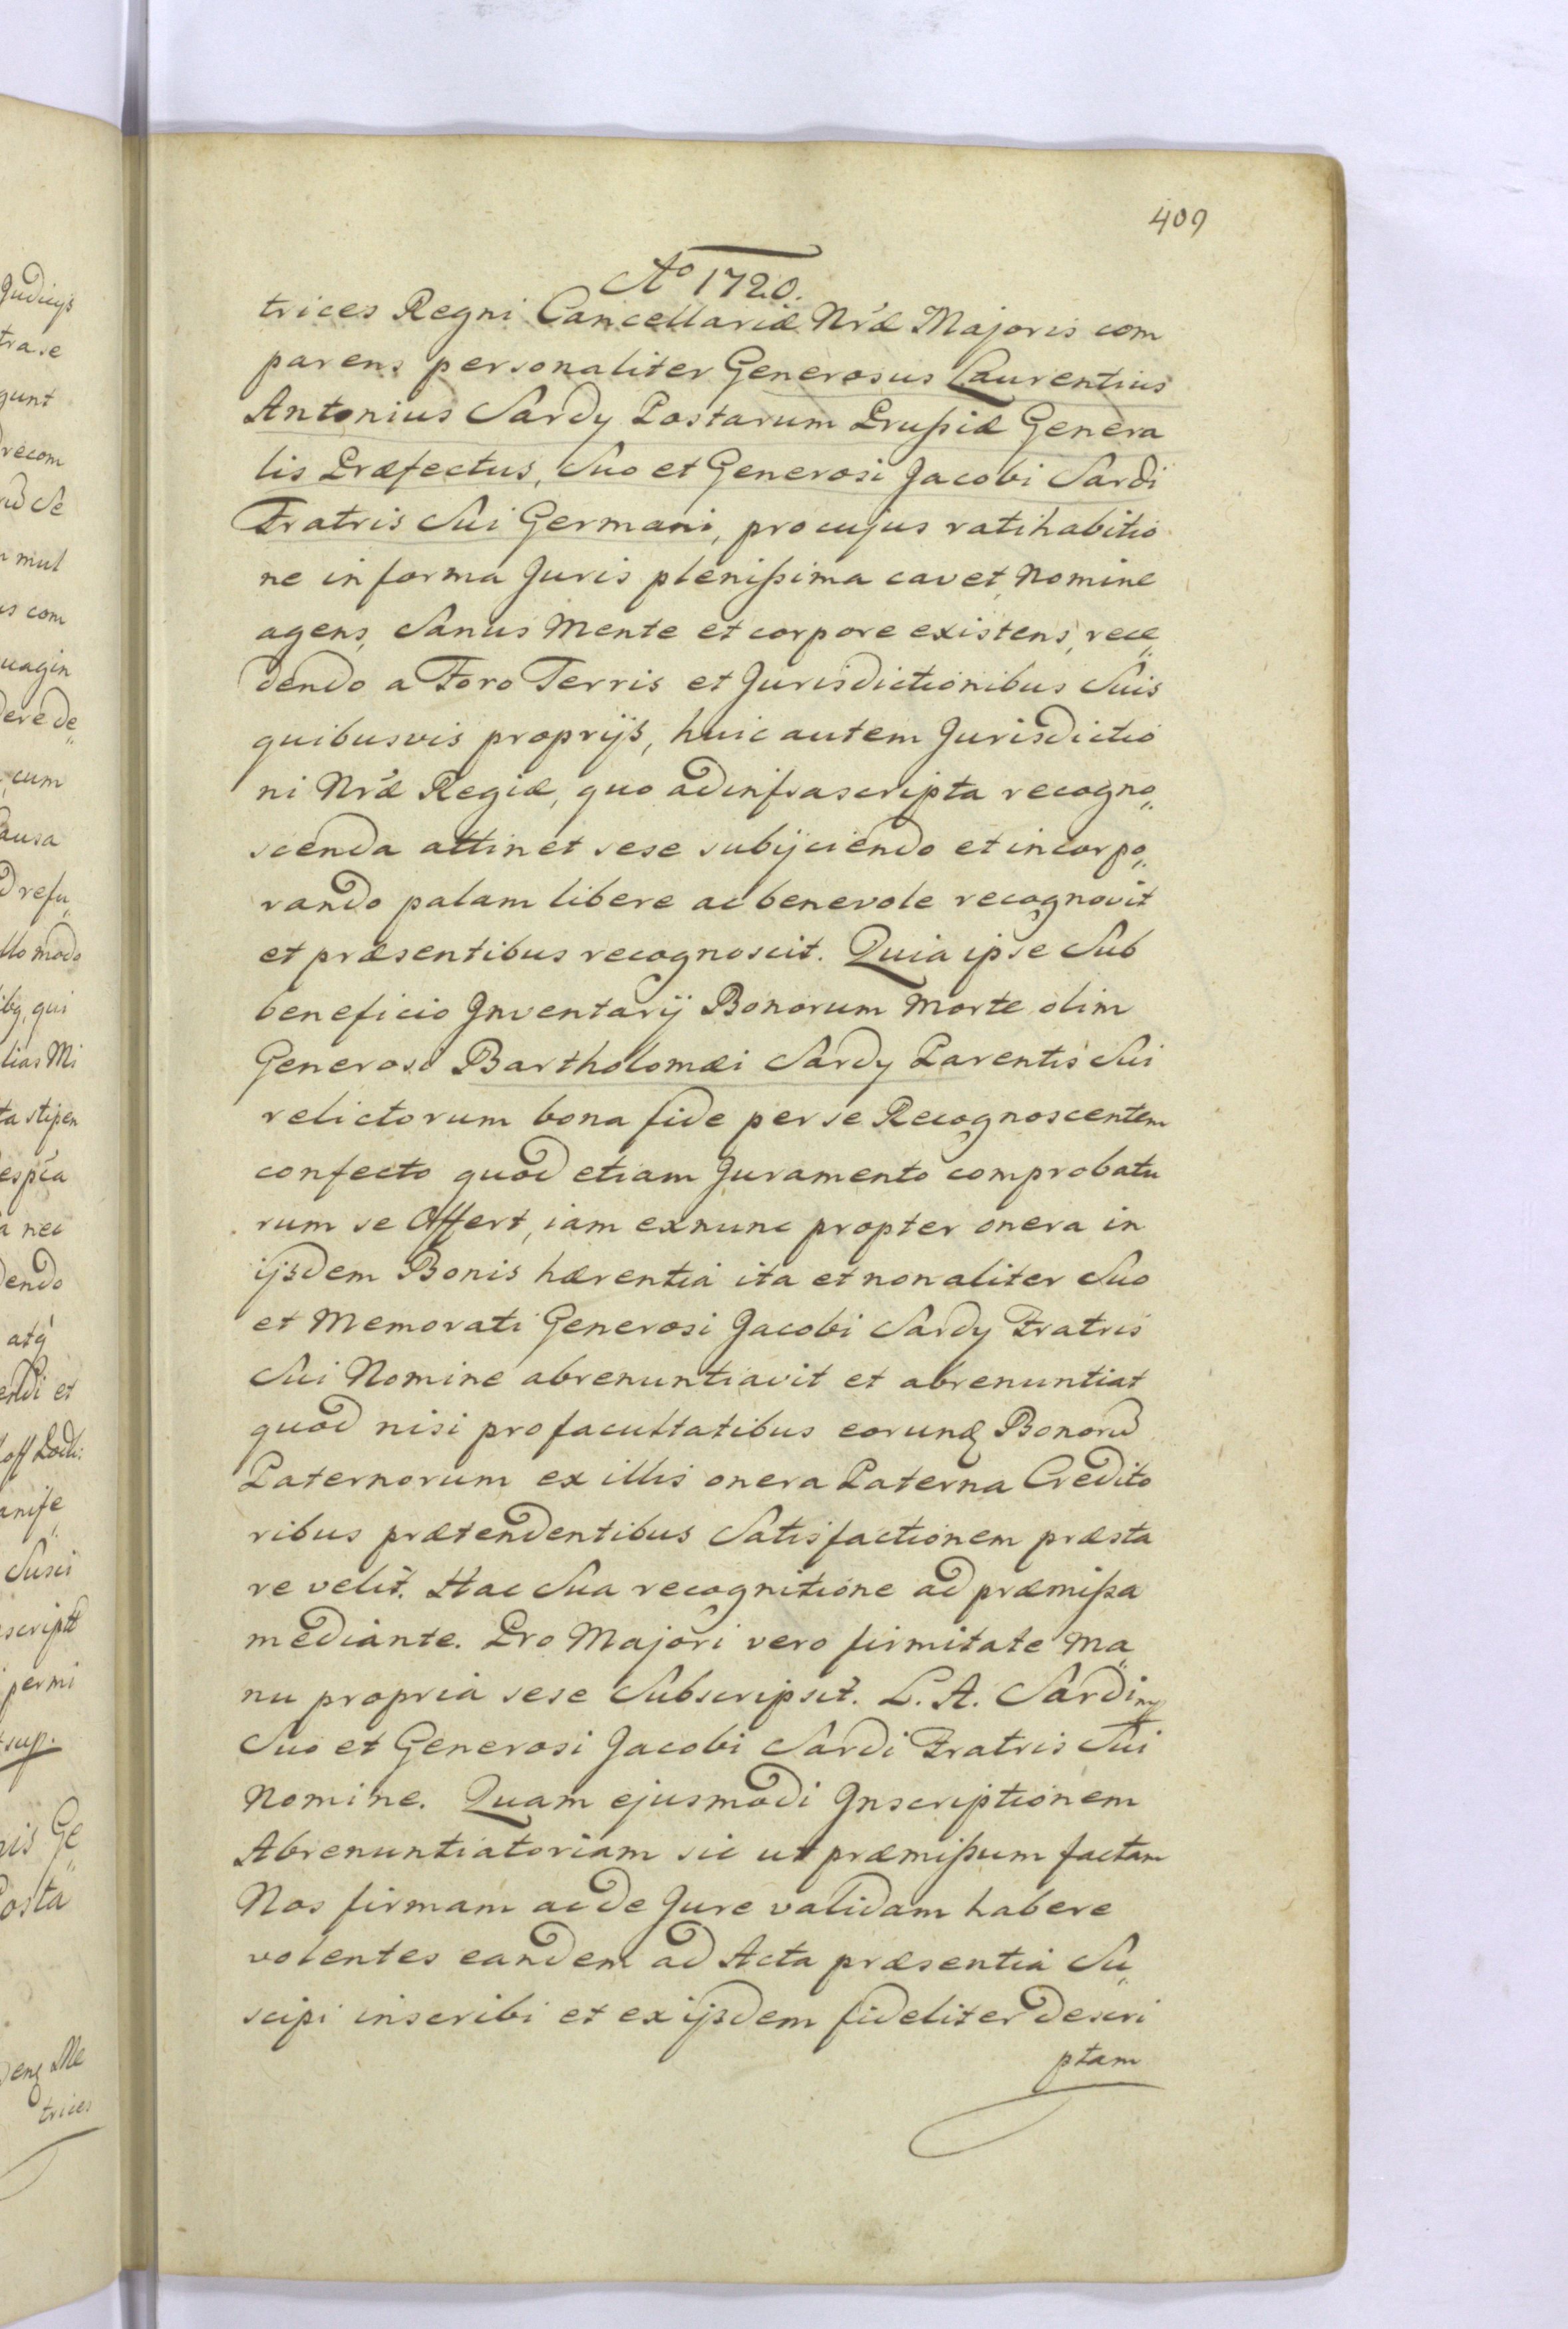 409
Ao 1720.
trices Regni Cancellariæ Nr̃æ Majoris com
parens personaliter Generosus Laurentius
Antonius Sardy Postarum Prußiæ Genera
lis Præfectus, Suo et Generosi Jacobi Sardi
Fratris Sui Germani, pro cujus ratihabitio
ne in forma Juris plenißima cavet, Nomine
agens, Sanus Mente et corpore existens, rece„
dendo a Foro Terris et Jurisdictionibus Suis
quibusvis proprijs, huic autem Jurisdictio
ni Nr̃æ Regiæ, quo ad infrascripta recogno„
scenda attinet sese subijciendo et incorpo„
rando palam libere ac benevole recognovit
et præsentibus recognoscit. Quia ipse Sub
beneficio Inventarij Bonorum Morte olim
Generosi Bartholomæi Sardy Parentis Sui
relictorum bona fide per se Recognoscentem
confecto quod etiam Juramento comprobatu
rum se Offert, iam exnunc propter onera in
ijsdem Bonis hærentia ita et non aliter Suo
et Memorati Generosi Jacobi Sardy Fratris
Sui Nomine abrenuntiavit et abrenuntiat
quod nisi pro facultatibus eorund Bonorũ
Paternorum ex illis onera Paterna Credito
ribus prætendentibus Satisfactionem præsta
re velit. Hac Sua recognitione ad præmißa
mediante. Pro Majori vero firmitate Ma„
nu propria sese Subscripsit. L. A. Sardi mp
Suo et Generosi Jacobi Sardi Fratris Sui
Nomine. Quam ejusmodi Inscriptionem
Abrenuntiatoriam sic ut præmißum factam
Nos firmam ac de Jure validam habere
volentes eandem ad Acta præsentia Su„
scipi inscribi et ex ijsdem fideliter descri
ptam